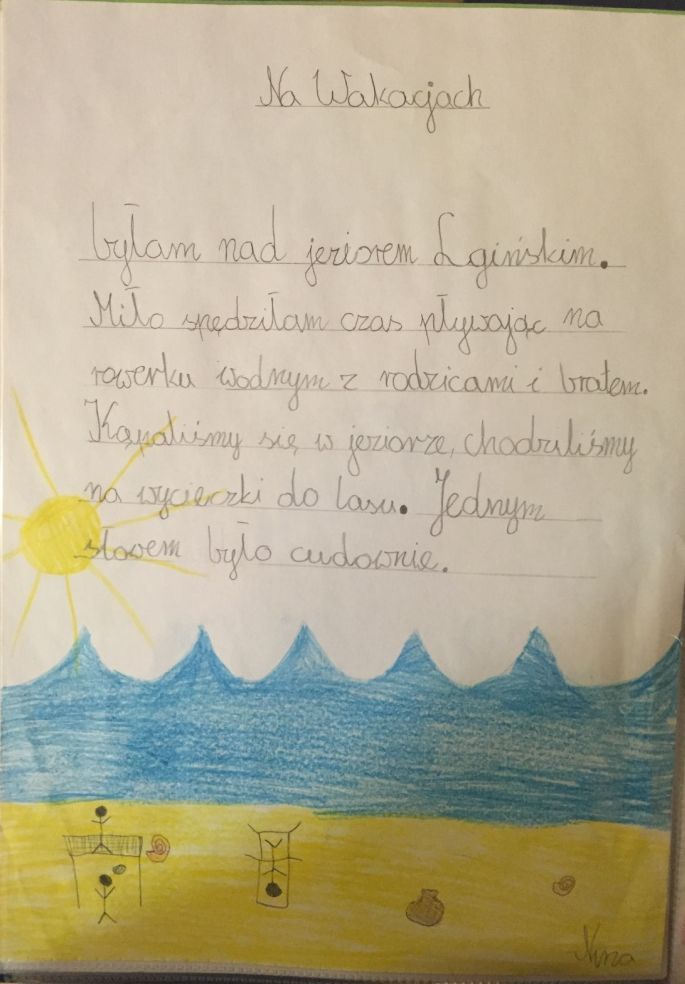 Na Wakacjach
byłam nad jeziorem Lgińskim.
Miło spędziłam czas pływając na
rowerku wodnym z rodzicami i bratem.
Kąpaliśmy się w jeziorze, chodziliśmy
na wycieczki do lasu. Jednym
słowem było cudownie.
Nina